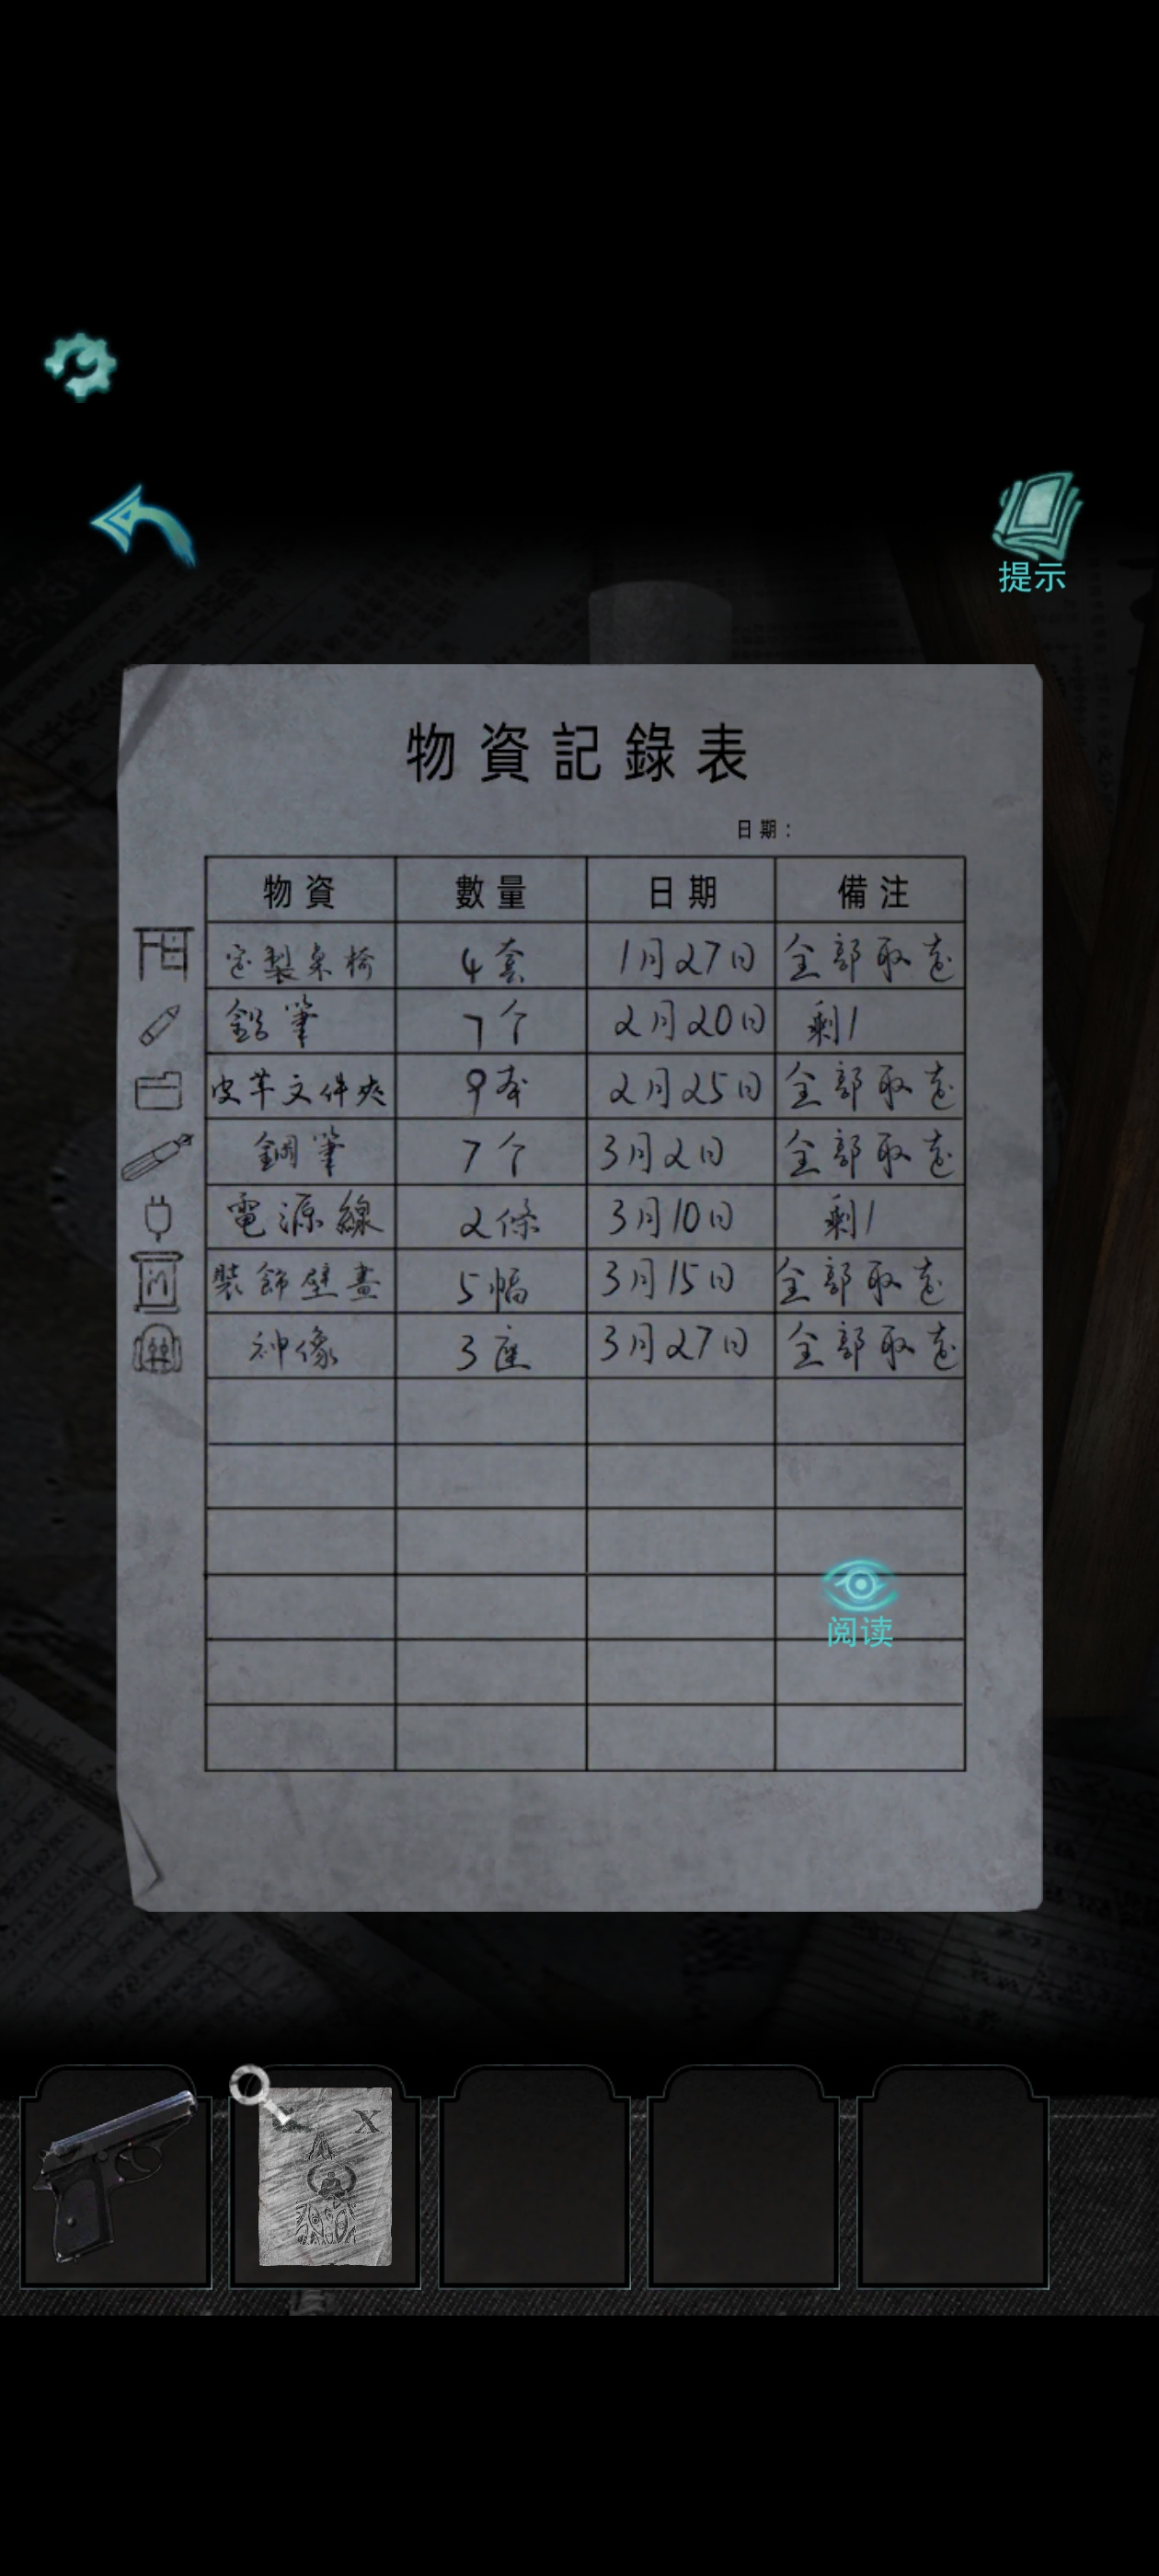 提示
物資記錄表
日期:
物資 數量 日期 備注
定製桌椅 4套 1月27日 全部取走
鉛筆 7个 2月20日 剩1
皮革文件夾 9本 2月25日 全部取走
鋼筆 7个 3月2日 全部取走
電源線 2條 3月10日 剩1
裝飾壁畫 5幅 3月15日 全部取走
神像 3座 3月27日 全部取走
阅读
X